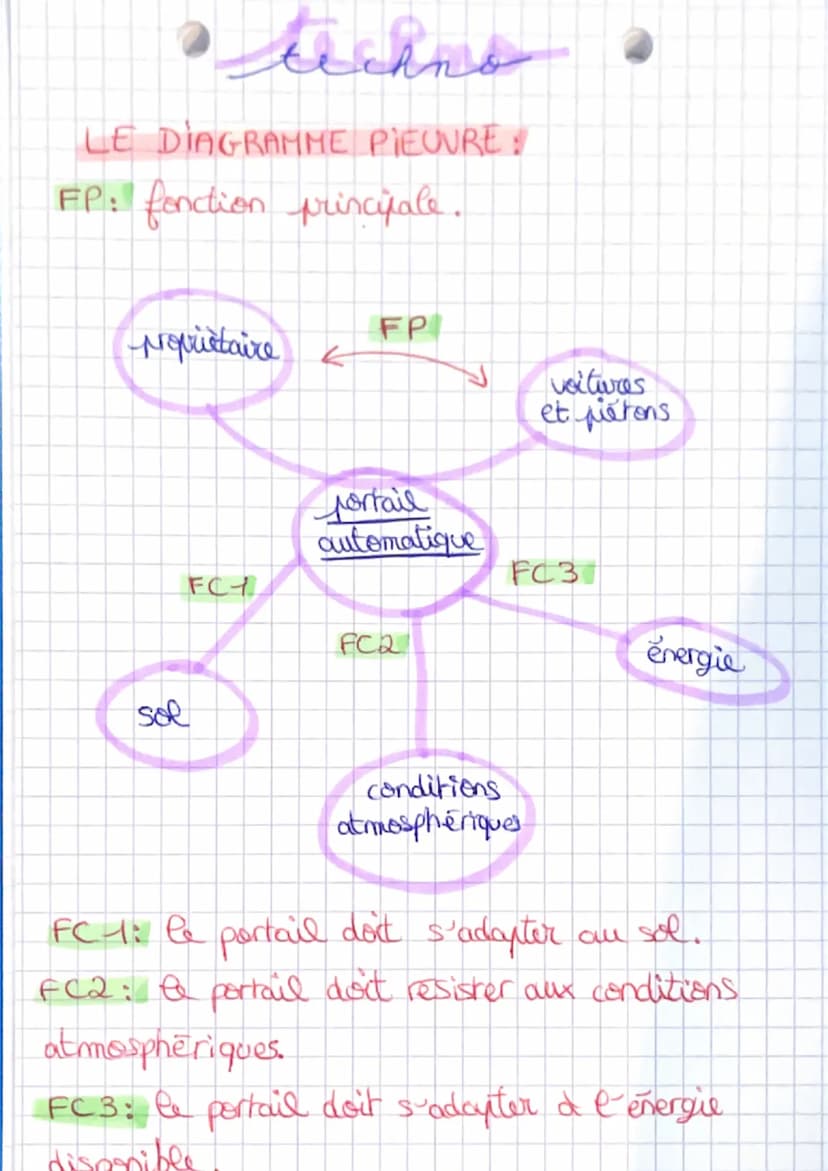 techno
LE DIAGRAMME PIEUVRE :
FP : fonction principale.
FP
propriètaire
voitures
et piétons
portail
automatique
FC1
FC3
FC2
énergie
sol
conditions
atmosphériques
FC1: le portail doit s'adapter au sol.
FC2: le portail doit resister aux conditions
atmosphériques.
FC3: le portail doit s'adapter à l'énergie
disponible.